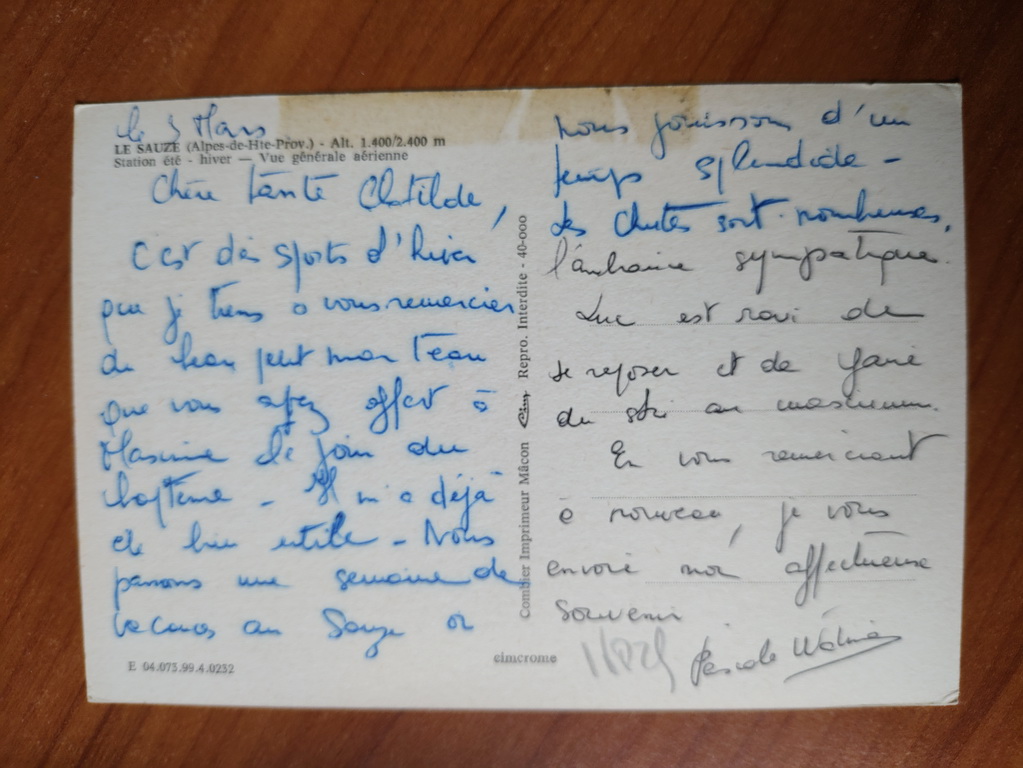 le 3 Mars
LE SAUZE (Alpes-de-Hte-Prov.) - Alt. 1.400/2.400 m
Station été - hiver — Vue générale aérienne
Chère tante Clotilde,
C'est des sports d'hiver
que je tiens a vous remercier
du beau petit manteau
que vous avez offert à
Maxime le jour du
baptême - Il m'a déjà
été bien utile - Nous
passons une semaine de
vacances au Sauze où
E 04.073.99.4.0232
Combier Imprimeur Mâcon Cim Repro. Interdite - 40-000
cimcrome
nous jouissons d'un
temps splendide -
Les chutes sont nombreuses,
l'ambiance sympatique.
Luc est ravi de
se reposer et de faire
du ski au maximum.
En vous remerciant
a nouveau, je vous
envoie mon affectueux
souvenir
Pascale